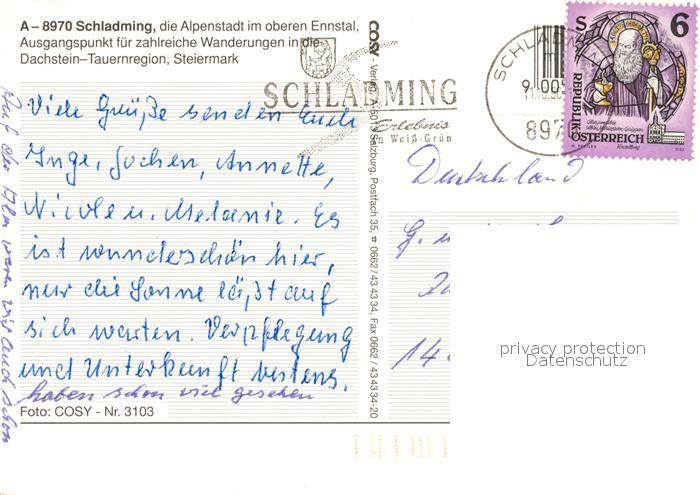 A – 8970 Schladming, die Alpenstadt im oberen Ennstal,
Ausgangspunkt für zahlreiche Wanderungen in die
Dachstein–Tauernregion, Steiermark
Viele Grüße senden Euch
Inge, Jochen, Annette,
Nicole u. Melanie. Es
ist wunderschön hier,
nur die Sonne läßt auf
sich warten. Verpflegung
und Unterkunft bestens.
haben schon viel gesehen
Auf der Alm waren wir auch schon
Foto: COSY - Nr. 3103
COSY - Verlag, A-5013 Salzburg, Postfach 35, ☎ 0662/43 43 34, Fax 0662/43 43 34-20
SCHLADMING
Erlebnis
in Weiß Grün
SCHLADMING
897
S 6
REPUBLIK
ÖSTERREICH
Deutschland
G. u
14
privacy protection
Datenschutz